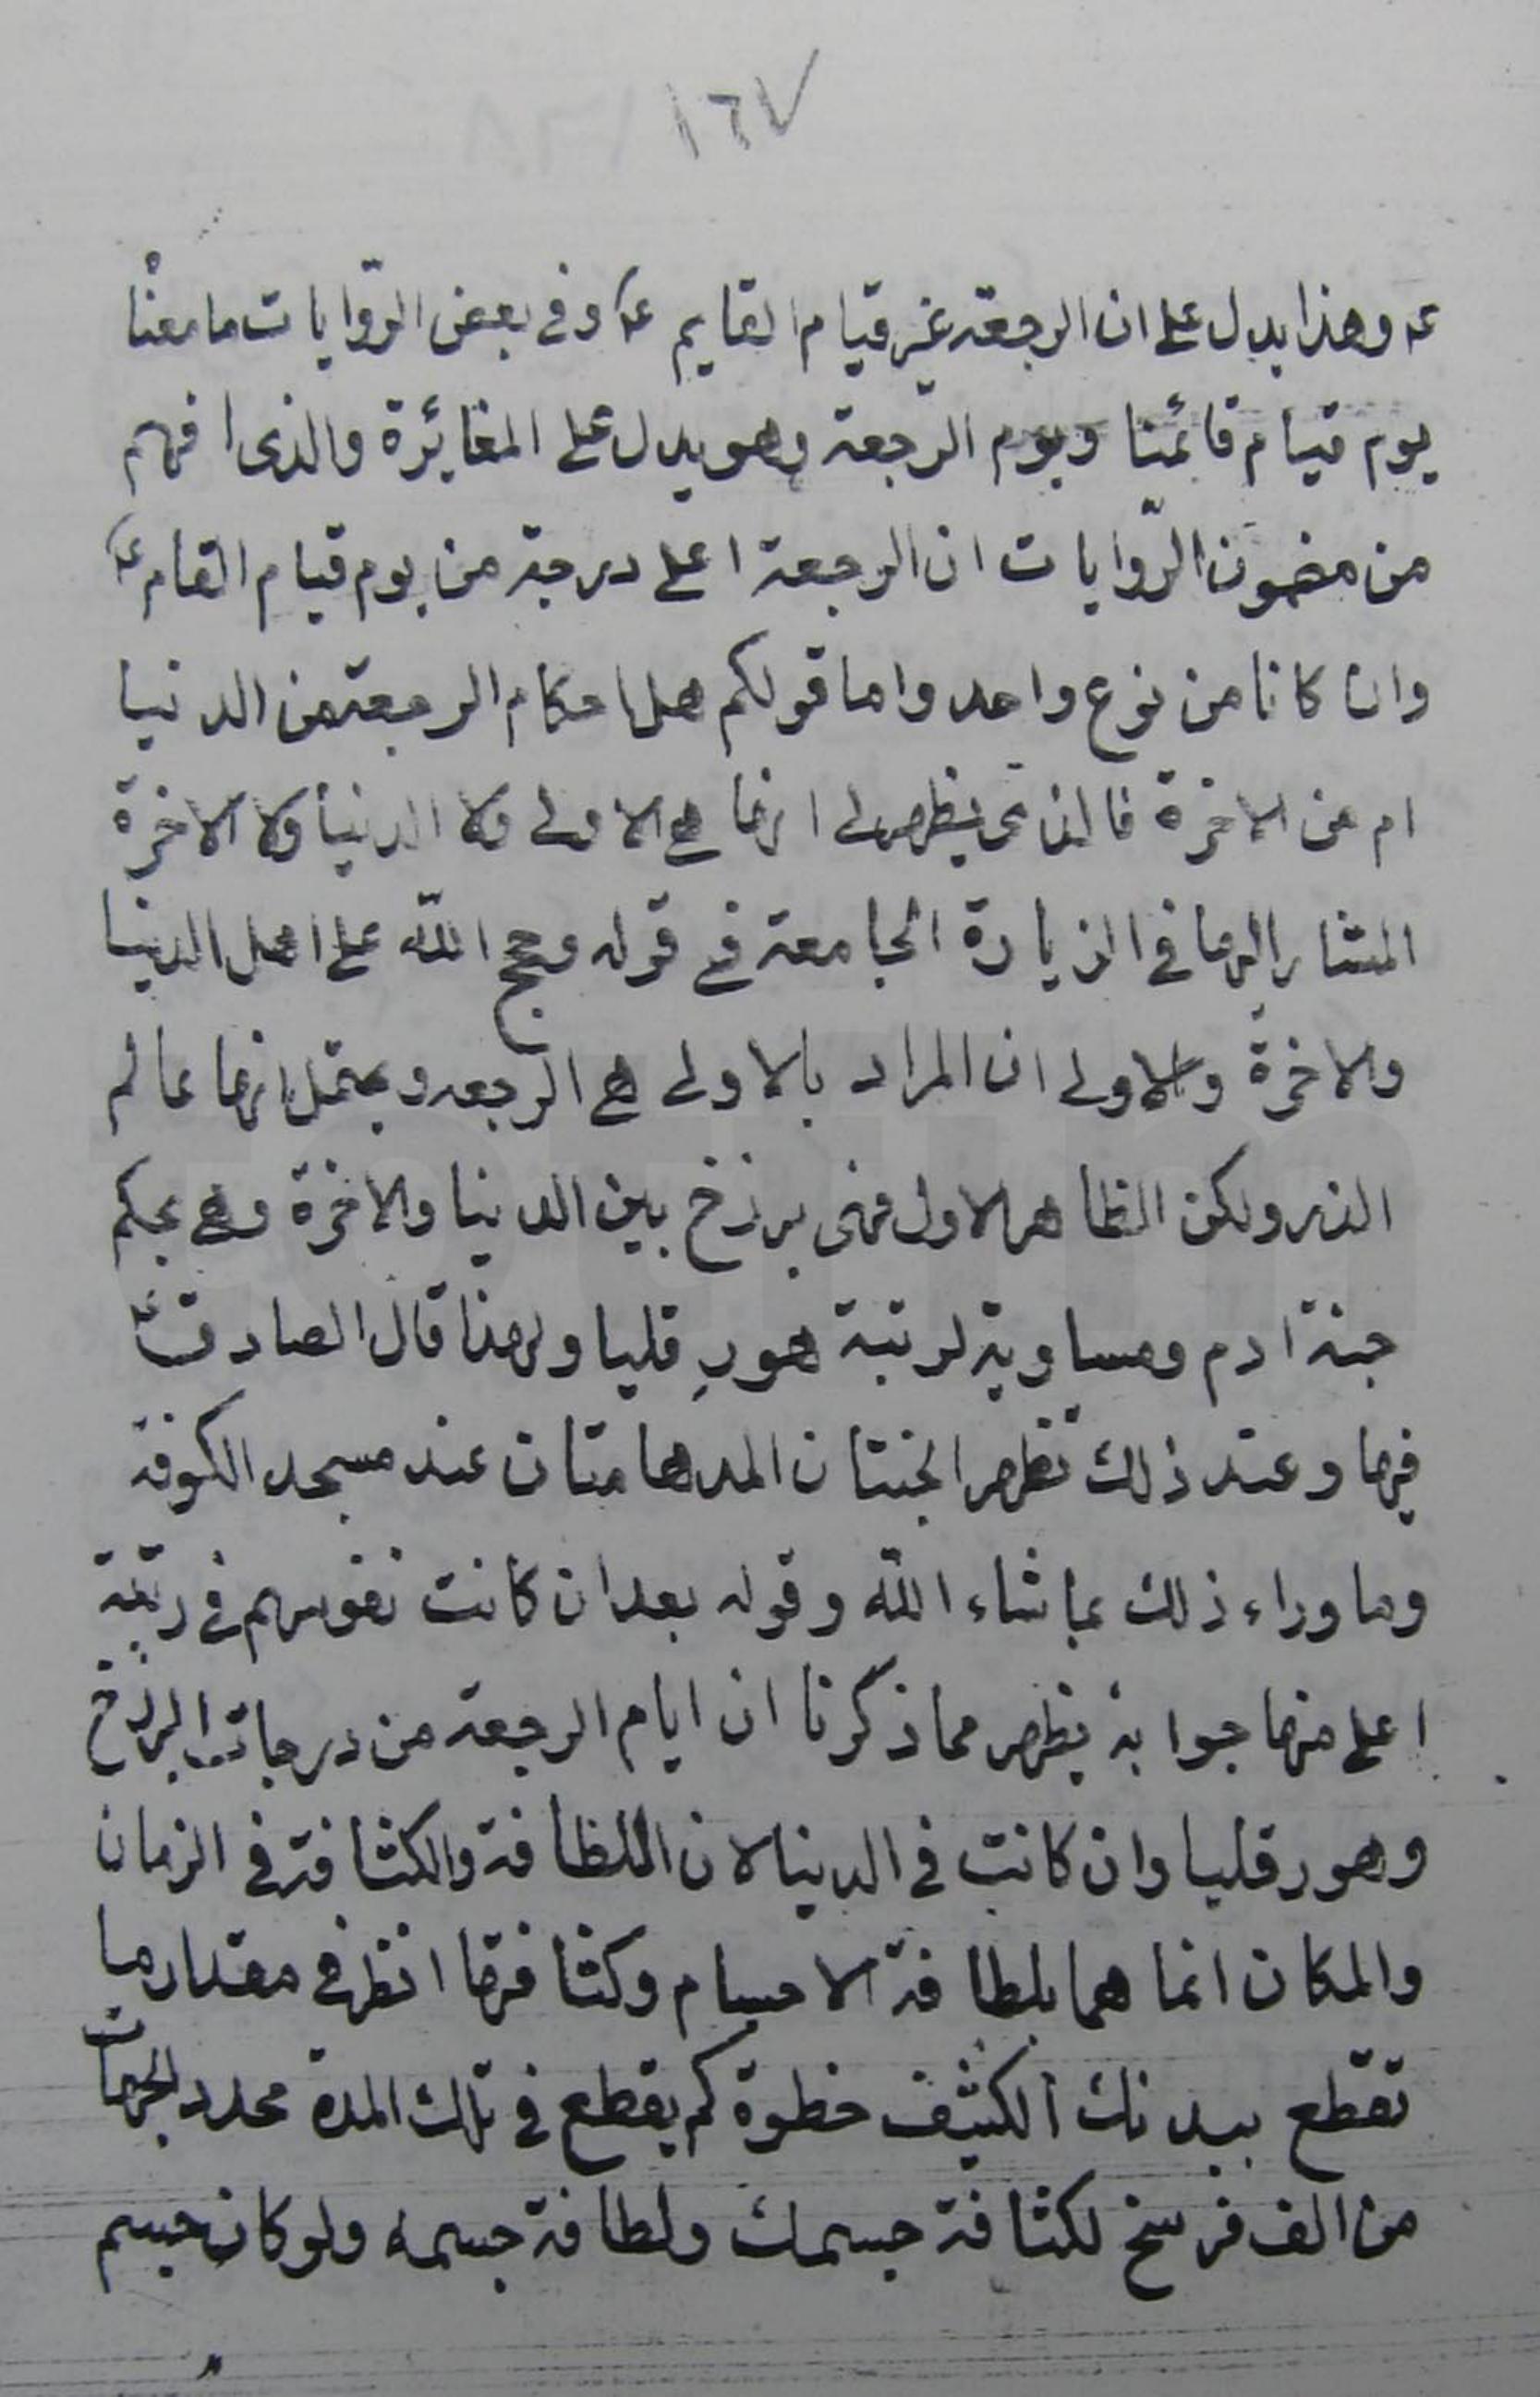 ١٦٧
ع‍ وهذا يدل على ان الرجعة غير قيام القايم ع‍ وفي بعض الرّوايات ما معنا
يوم قيام قائمنا ويوم الرجعة وهو يدل على المغائرة والذى افهم
من مضمون الرّوايات ان الرجعة اعلى درجة من يوم قيام القام ع‍
وان كانا من نوع واحد واما قولكم هل احكام الرجعة من الدنيا
ام من الاخرة فالذى يظهر لى انها هى الاولى ولا الدنيا ولا الاخرة
المشار اليها في الزيارة الجامعة في قوله وحجج اللّه على اهل الدنيا
والاخرة والاولى ان المراد بالاولى هى الرجعه ويحتمل انها عالم
الذر ولكن الظاهر الاول فهى برزخ بين الدنيا والاخرة وهى بحكم
جنة ادم ومساوية لرتبة هورِقليا ولهذا قال الصادق ع‍
فيها وعند ذلك تظهر الجنتان المدهامتان عند مسجد الكوفة
وما وراء ذلك بما شاء اللّه وقوله بعد ان كانت نفوسهم في رتبة
اعلى منها جوابه يظهر مما ذكرنا ان ايام الرجعة من درجات البرزخ
وهورقليا وان كانت في الدينا لان اللظافة والكثافة في الزمان
والمكان انما هما بلطافة الاجسام وكثافتها انظر في مقدار ما
تقطع ببدنك الكثيف خطوة كم يقطع في تلك المدة محدد الجهات
من الف فرسخ لكثافة جسمك ولطافة جسمه ولو كان جسم